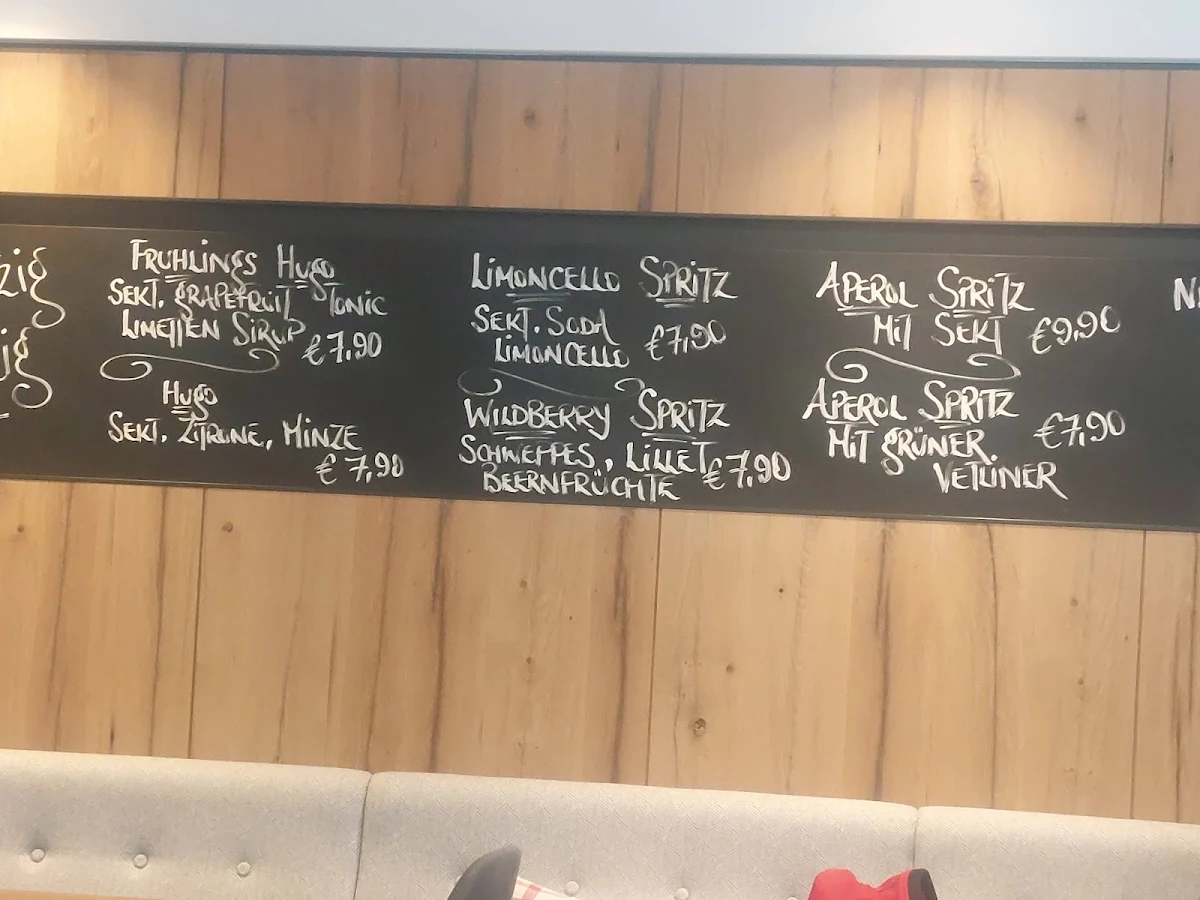 zig
ig
FRUHLINGS HUGO
SEKT. GRAPEFRUIT TONIC
LIMETTEN SIRUP €7,90
HUGO
SEKT. ZITRONE, MINZE
€7,90
LIMONCELLO SPRITZ
SEKT. SODA
LIMONCELLO €7,90
WILDBERRY SPRITZ
SCHWEPPES., LILLET
BEERNFRÜCHTE €7,90
APEROL SPRITZ
MIT SEKT €9,90
APEROL SPRITZ
MIT GRÜNER. €7,90
VETLINER